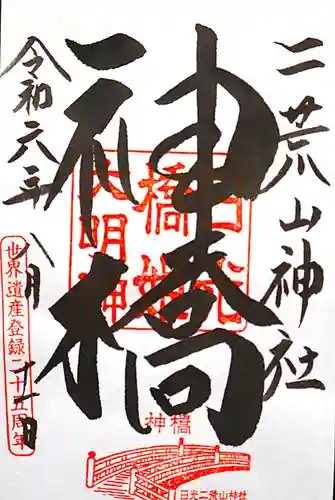 二荒山神社
神橋
令和六年八月十一日
日光
橋姫
大明神
世界遺産登録二十五周年
神橋
日光二荒山神社